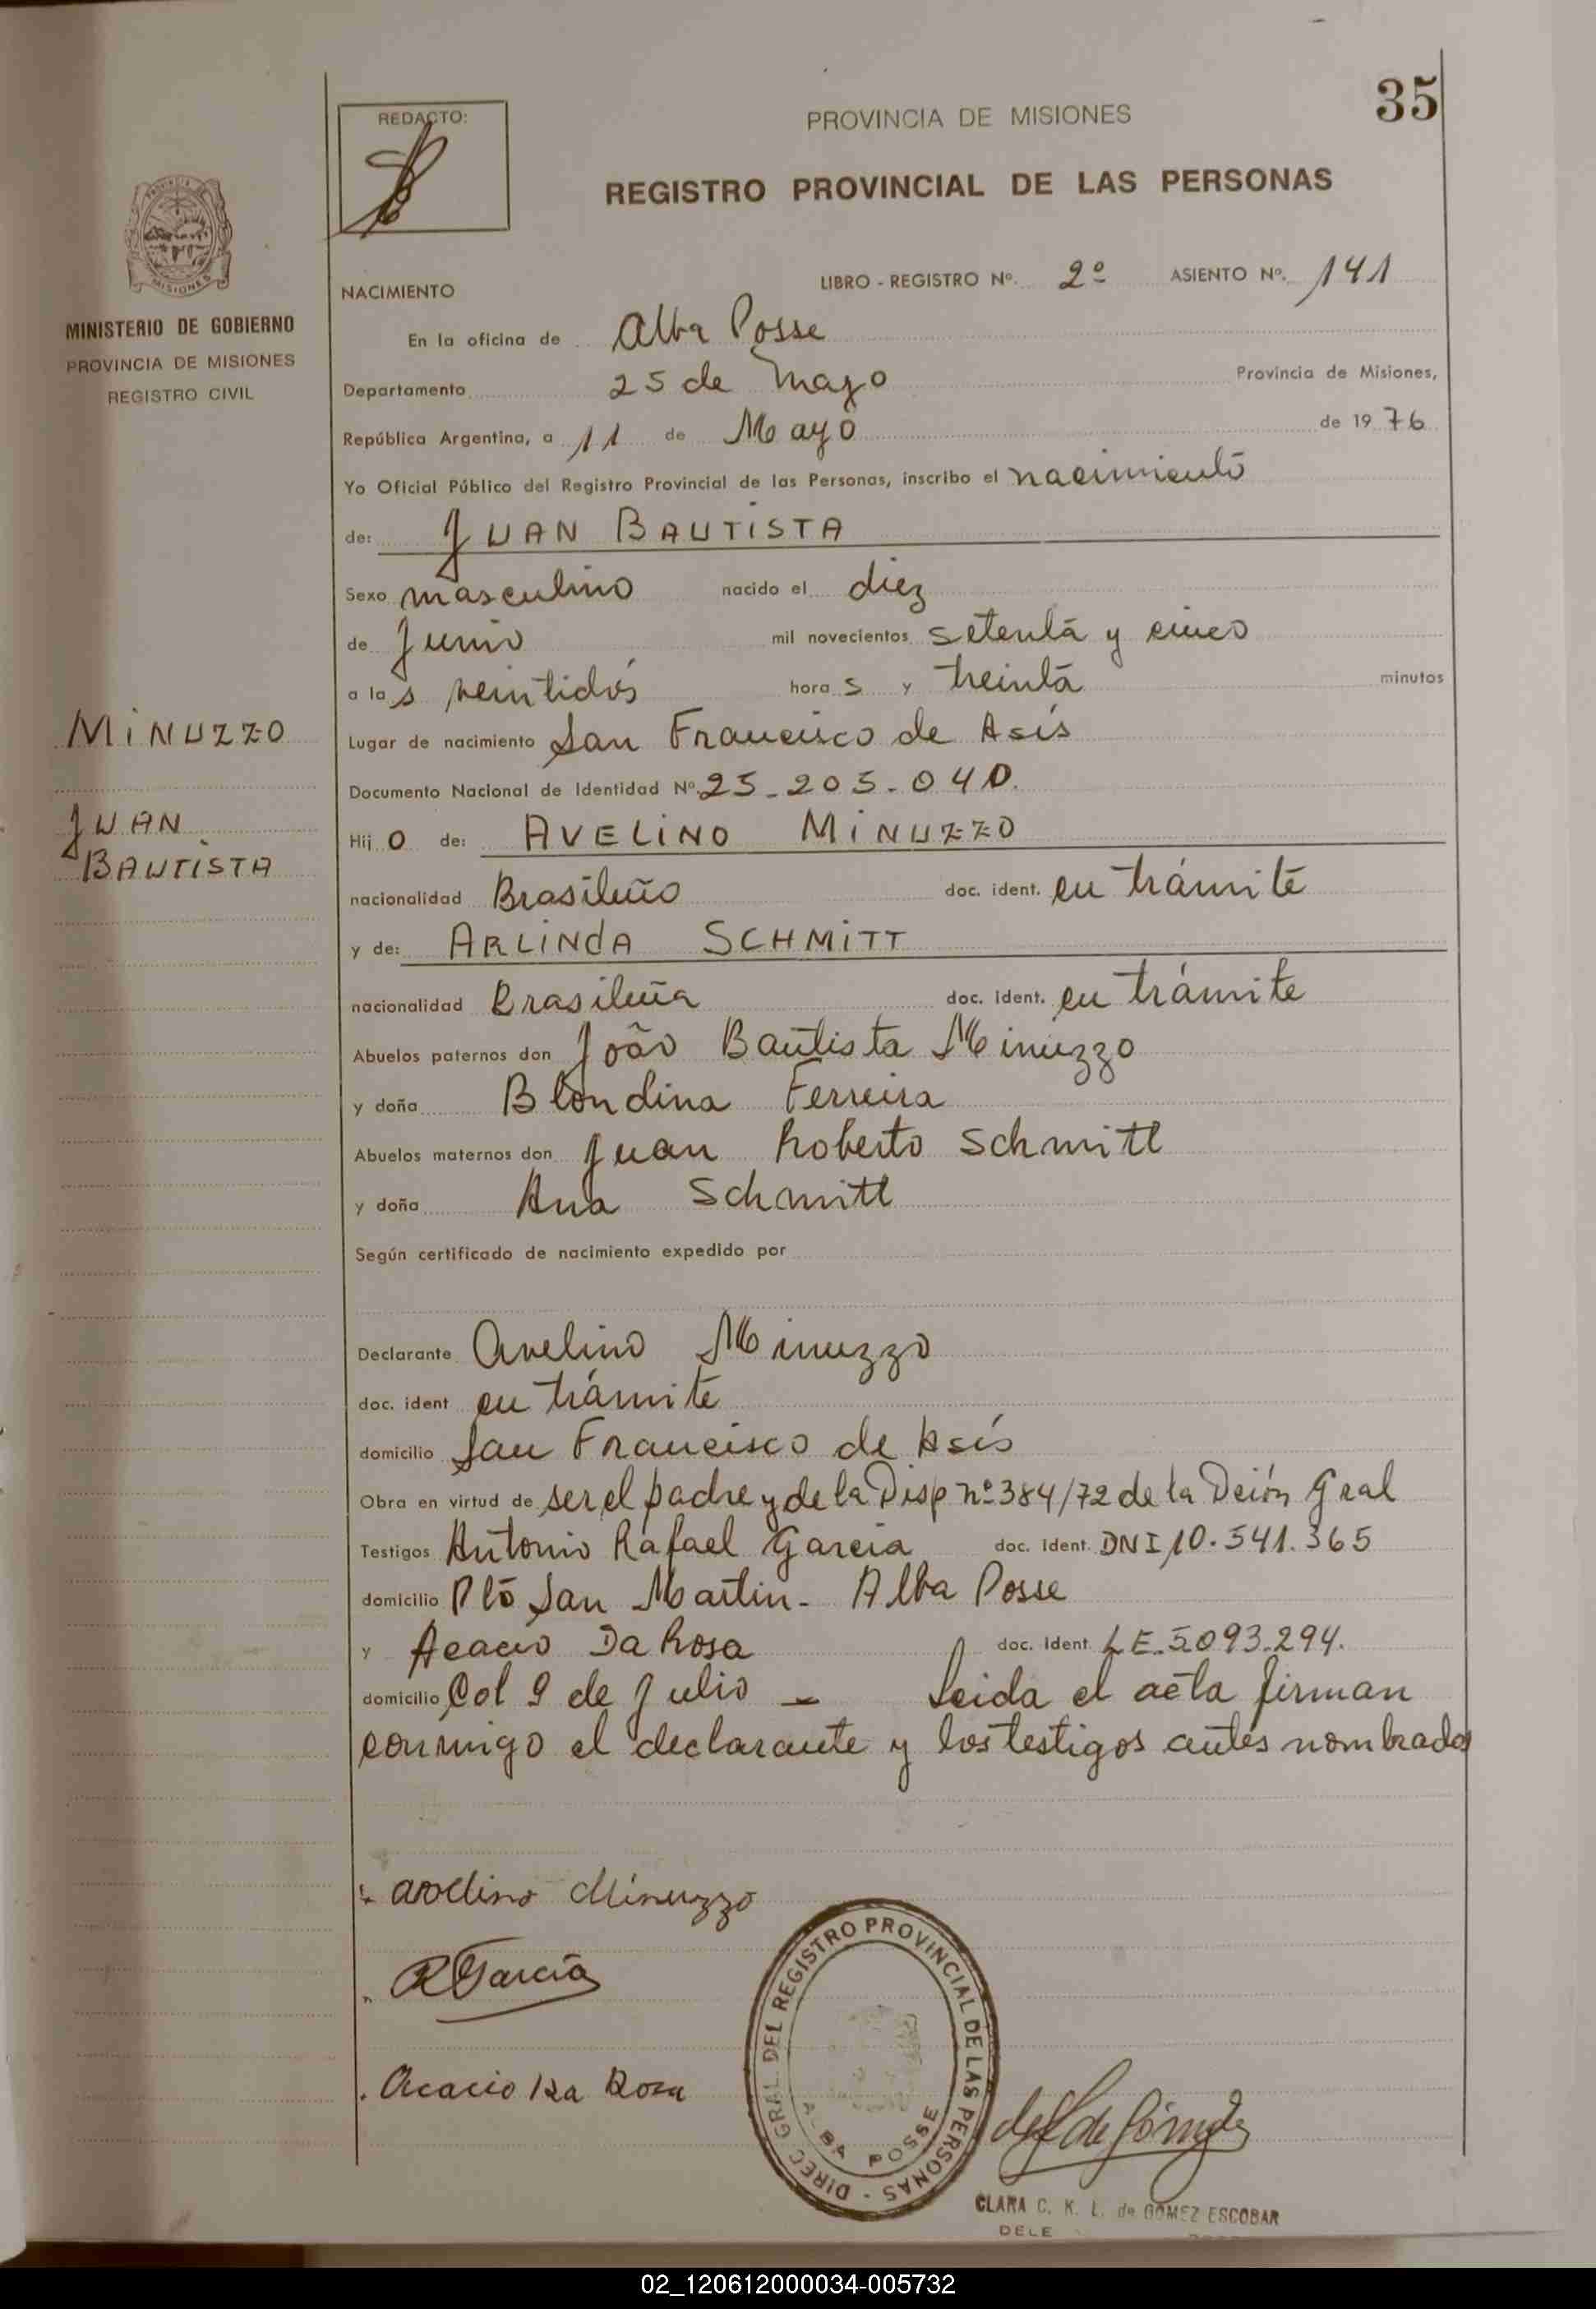 35
REDACTO:
PROVINCIA DE MISIONES
REGISTRO PROVINCIAL DE LAS PERSONAS
PROVINCIA DE
MISIONES
MINISTERIO DE GOBIERNO
PROVINCIA DE MISIONES
REGISTRO CIVIL
NACIMIENTO LIBRO - REGISTRO Nº. 2º ASIENTO Nº. 141
En la oficina de Alba Posse
Departamento 25 de Mayo Provincia de Misiones,
República Argentina, a 11 de Mayo de 1976
Yo Oficial Público del Registro Provincial de las Personas, inscribo el nacimiento
de: JUAN BAUTISTA
Sexo masculino nacido el diez
de Junio mil novecientos setenta y cinco
a las veintidós horas y treinta minutos
MINUZZO
Lugar de nacimiento San Francisco de Asís
Documento Nacional de Identidad Nº 25-205-040.
JUAN
BAUTISTA
Hijo de: AVELINO MINUZZO
nacionalidad Brasileño doc. ident. en trámite
y de: ARLINDA SCHMITT
nacionalidad Brasileña doc. ident. en trámite
Abuelos paternos don João Bautista Minuzzo
y doña Blondina Ferreira
Abuelos maternos don Juan Roberto Schmitt
y doña Ana Schmitt
Según certificado de nacimiento expedido por
Declarante Avelino Minuzzo
doc. ident en trámite
domicilio San Francisco de Asís
Obra en virtud de ser el padre y de la Disp nº 384/72 de la Dción Gral
Testigos Antonio Rafael Garcia doc. ident. DNI 10.541.365
domicilio Pto San Martin - Alba Posse
y Acacio Da Rosa doc. ident. LE.5.093.294.
domicilio Col 9 de Julio - Leida el acta firman
conmigo el declarante y los testigos antes nombrados
avelino Minuzzo
R Garcia
Acacio Da Rosa
DIREC. GRAL. DEL REGISTRO PROVINCIAL DE LAS PERSONAS -
ALBA POSSE
CLARA C. K. L. de GOMEZ ESCOBAR
DELE
02_120612000034-005732